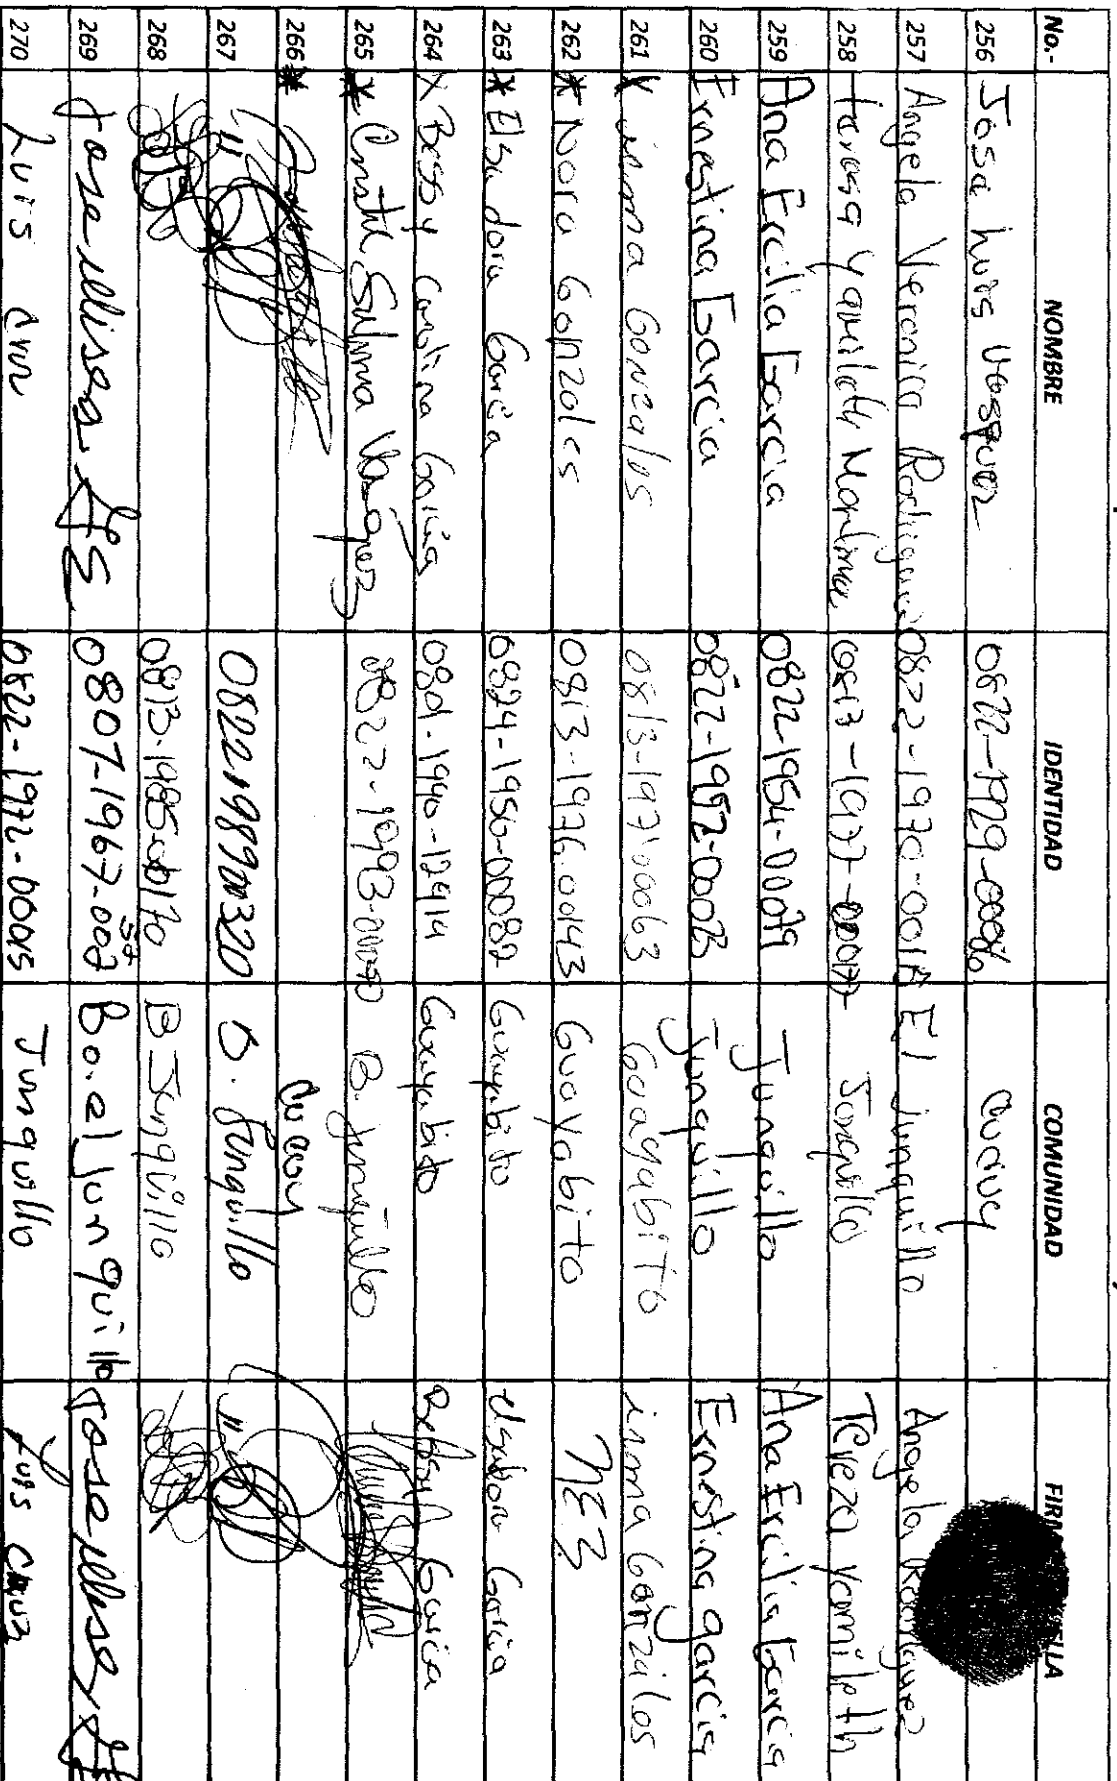 No.- NOMBRE IDENTIDAD COMUNIDAD FIRMA
256 Josa Luis Vasquez 0822-1929-00086
257 Angela Veronica Rodriguez 0822-1970-0018 El junquillo Angela Rodriguez
258 Taresa Yamileth 0813-1977-00177 Tereza Yamileth
259 Ana Ercilia Garcia 0822-1954-00079 Junquillo Ana Ercilia Garcia
260 Ernestina Garcia 0822-1952-00023 Junquillo Ernestina garcia
261 * irma Gonzales 0813-1971-00063 Guayabito irma Gonzalos
262 * Nora Gonzales 0813-1976-00143 Guayabito
263 * Elsa dora Garcia 0824-1956-00082 Guayabito elsadora Garcia
264 X Bessy Carolina Garcia 0801-1990-12414 Guayabito Bessy Garcia
265 * Cristh Selinna Vasquez 0822-1993-00070 B. junquillo
266 *
267 " 0822198900320 B. Junquillo "
268 0813-1985-00170 B Junquillo
269 Jose ulises 0807-1967-000 Bo. el junquillo Jose ulises
270 Luis Cruz 0822-1972-00015 Junquillo Luis Cruz